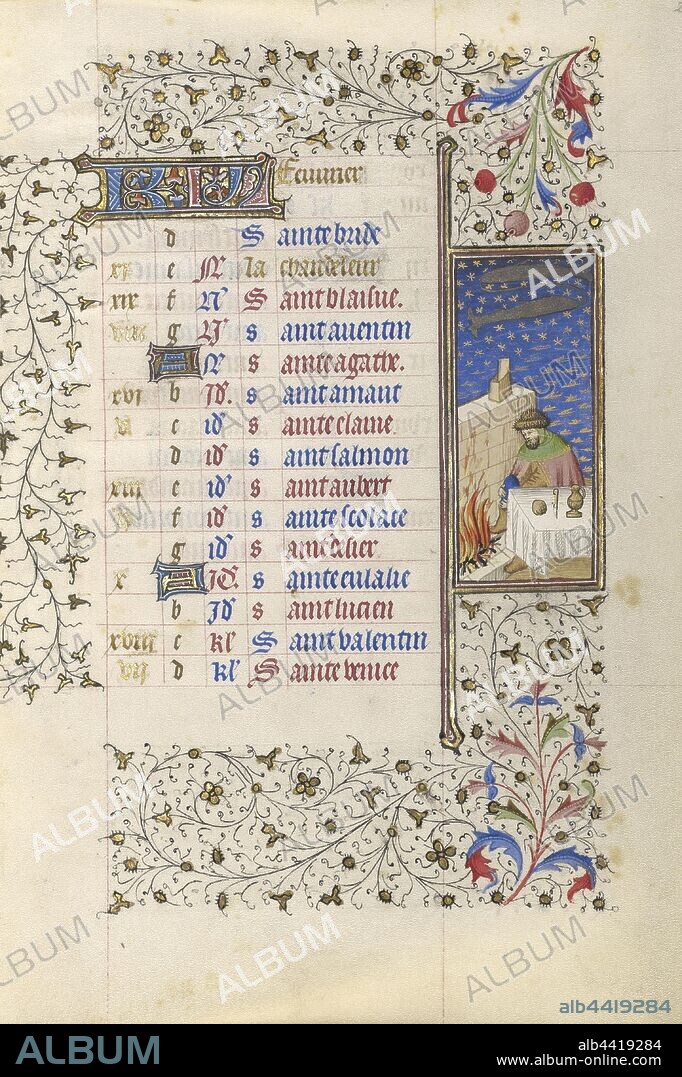 KL Feurier
d S ainte bride
xi e N la chandeleur
xix f N S aint blaisue.
viii g N s aint auentin
A N s ainte agathe.
xvi b id. s aint amant
v c id s ainte claire.
d id s aint salmon
xiii e id s aint aubert
ii f id s ainte scolace
g id s aint helier.
x A id. s ainte eulalie
b id s aint lucien
xviii c kl S aint valentin
vii d kl S ainte venice
ALBUM
alb4419284
ALBUM
alb4419284
www.album-online.com